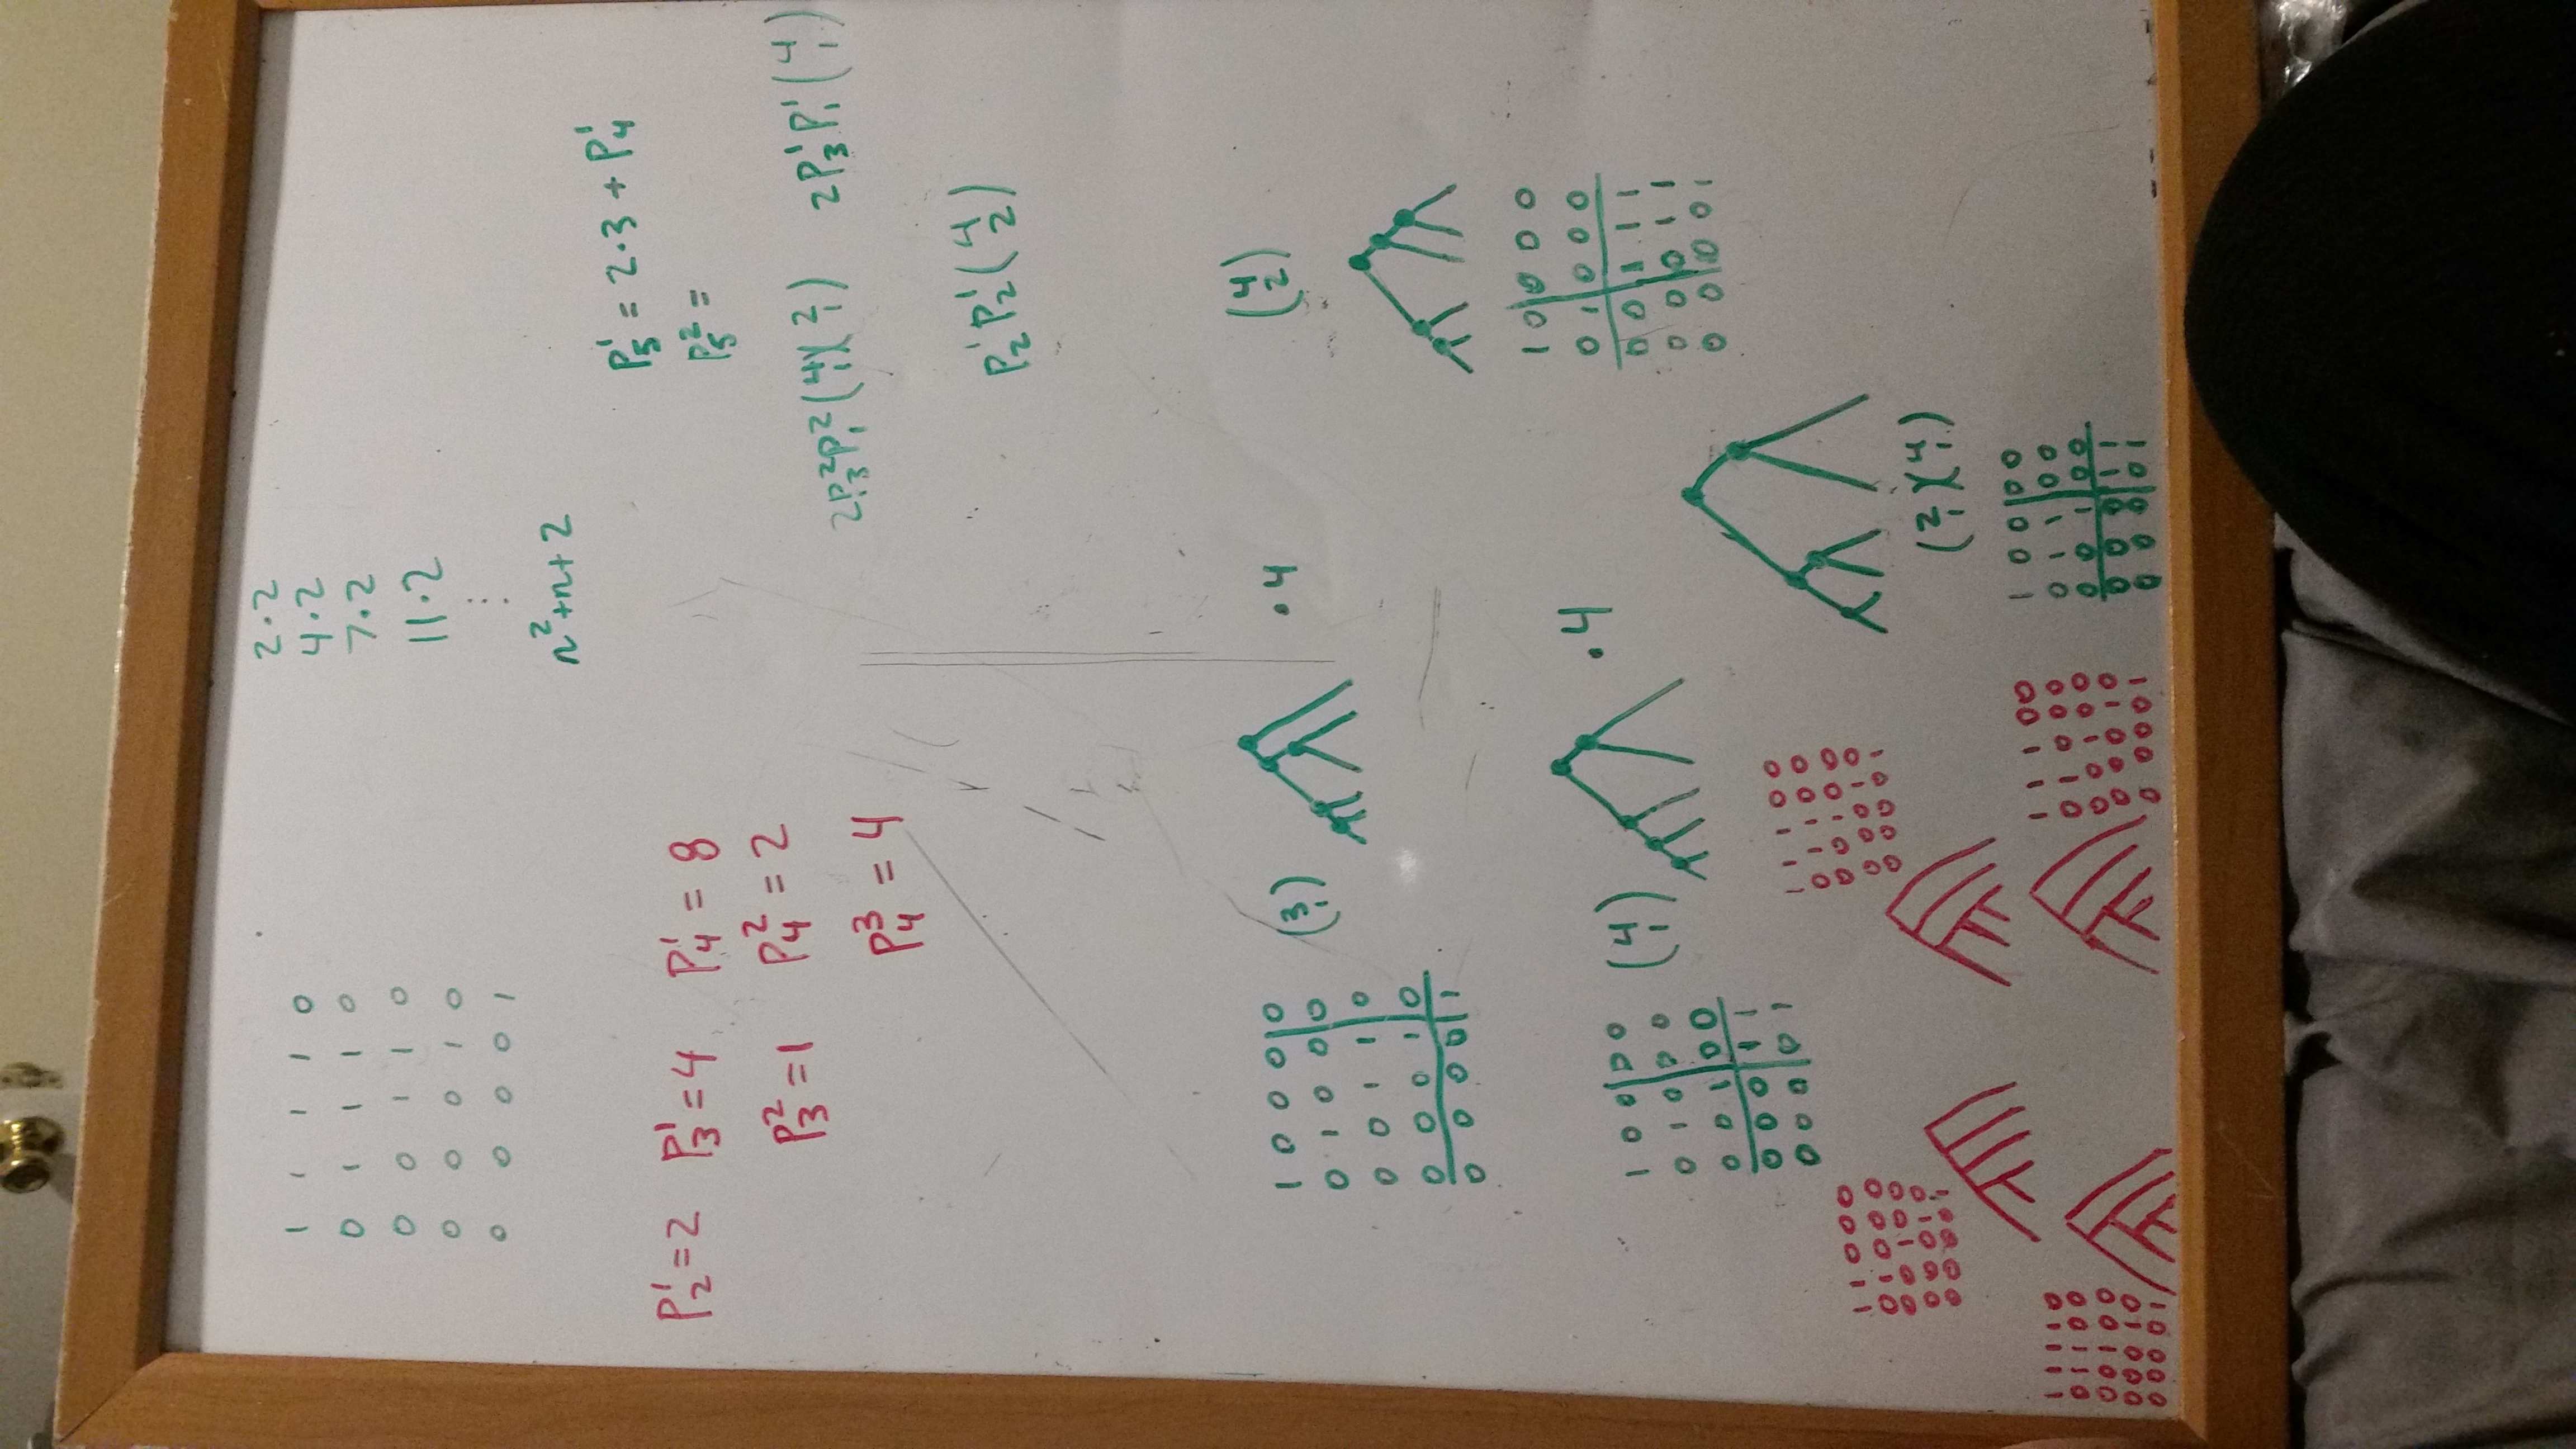 1 1 1 1 0
0 1 1 1 0
0 0 1 1 0
0 0 0 1 0
0 0 0 0 1
2·2
4·2
7·2
11·2
⋮
n²+n+2
P₂¹=2 P₃¹=4 P₄¹ = 8
P₃²=1 P₄² = 2
P₄³ = 4
P₅¹ = 2·3 + P₄¹
P₅² =
2P₃²P₁²(4 1)(2 1) 2P₃¹P₁¹(4 1)
P₂¹P₂¹(4 2)
1 0 0 0|0
0 1 0 0|0
0 0 1 1|0
0 0 0 1|0
0 0 0 0|1
(3 1)
·4
(4 2)
1 0|0 0 0
0 1|0 0 0
0 0|1 1 1
0 0|0 1 1
0 0|0 0 1
1 0 0|0 0
0 1 0|0 0
0 0 1|0 0
0 0 0|1 1
0 0 0|0 1
(4 1)
·4
1 1 1 0 0
0 1 1 0 0
0 0 1 0 0
0 0 0 1 0
0 0 0 0 1
1 1 0 0 0
0 1 0 0 0
0 0 1 0 0
0 0 0 1 0
0 0 0 0 1
(2 1)(4 1)
1 0 0|0 0
0 1 1|0 0
0 0 1|0 0
0 0 0|1 1
0 0 0|0 1
1 1 1 0 0
0 1 0 0 0
0 0 1 0 0
0 0 0 1 0
0 0 0 0 1
1 1 1 1 0
0 1 1 0 0
0 0 1 0 0
0 0 0 1 0
0 0 0 0 1